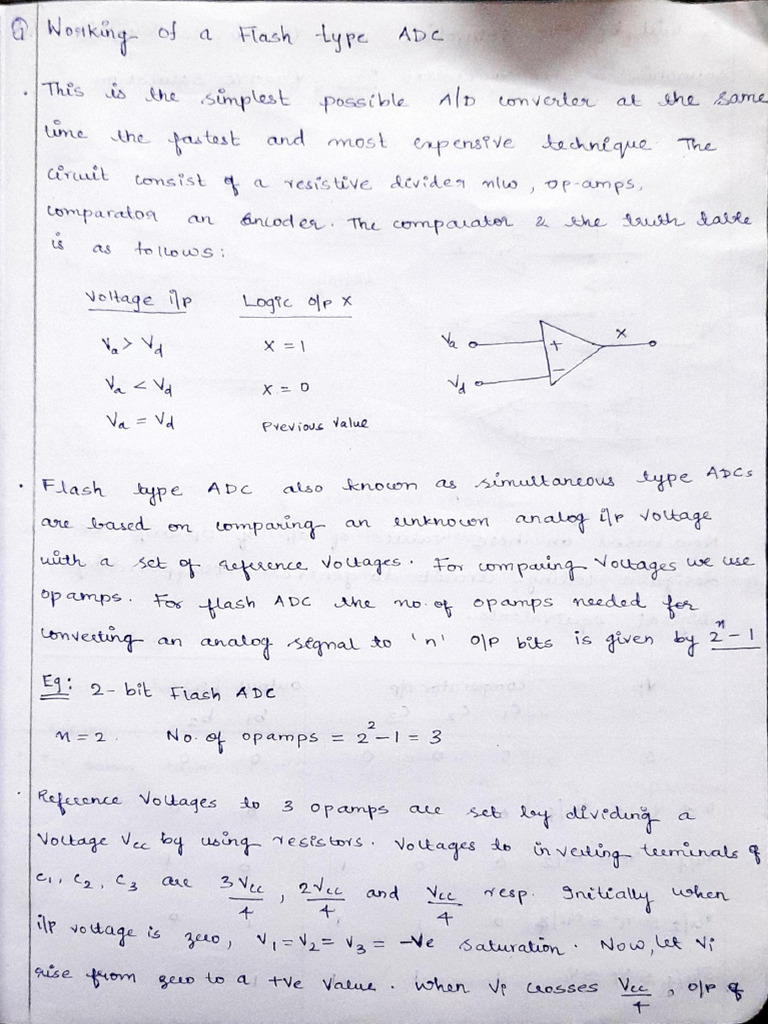 Q Working of a Flash type ADC
. This is the simplest possible A/D converter at the same
time the fastest and most expensive technique The
circuit consist of a resistive divider n/w, op-amps,
comparator an encoder. The comparator & the truth table
is as follows:
Voltage i/p Logic o/p X
Va > Vd X = 1
Va < Vd X = 0
Va = Vd Previous Value
Va + X
Vd −
. Flash type ADC also known as simultaneous type ADCs
are based on comparing an unknown analog i/p voltage
with a set of reference voltages. For comparing voltages we use
opamps. For flash ADC the no. of opamps needed for
converting an analog signal to 'n' o/p bits is given by 2^n − 1
Eg: 2-bit Flash ADC
n = 2. No. of opamps = 2^2 − 1 = 3
. Reference Voltages to 3 opamps are set by dividing a
Voltage Vcc by using resistors. Voltages to inverting terminals of
C1, C2, C3 are 3Vcc/4, 2Vcc/4 and Vcc/4 resp. Initially when
i/p voltage is zero, V1 = V2 = V3 = −Ve saturation. Now, let Vi
rise from zero to a +ve value. When Vi crosses Vcc/4, o/p of